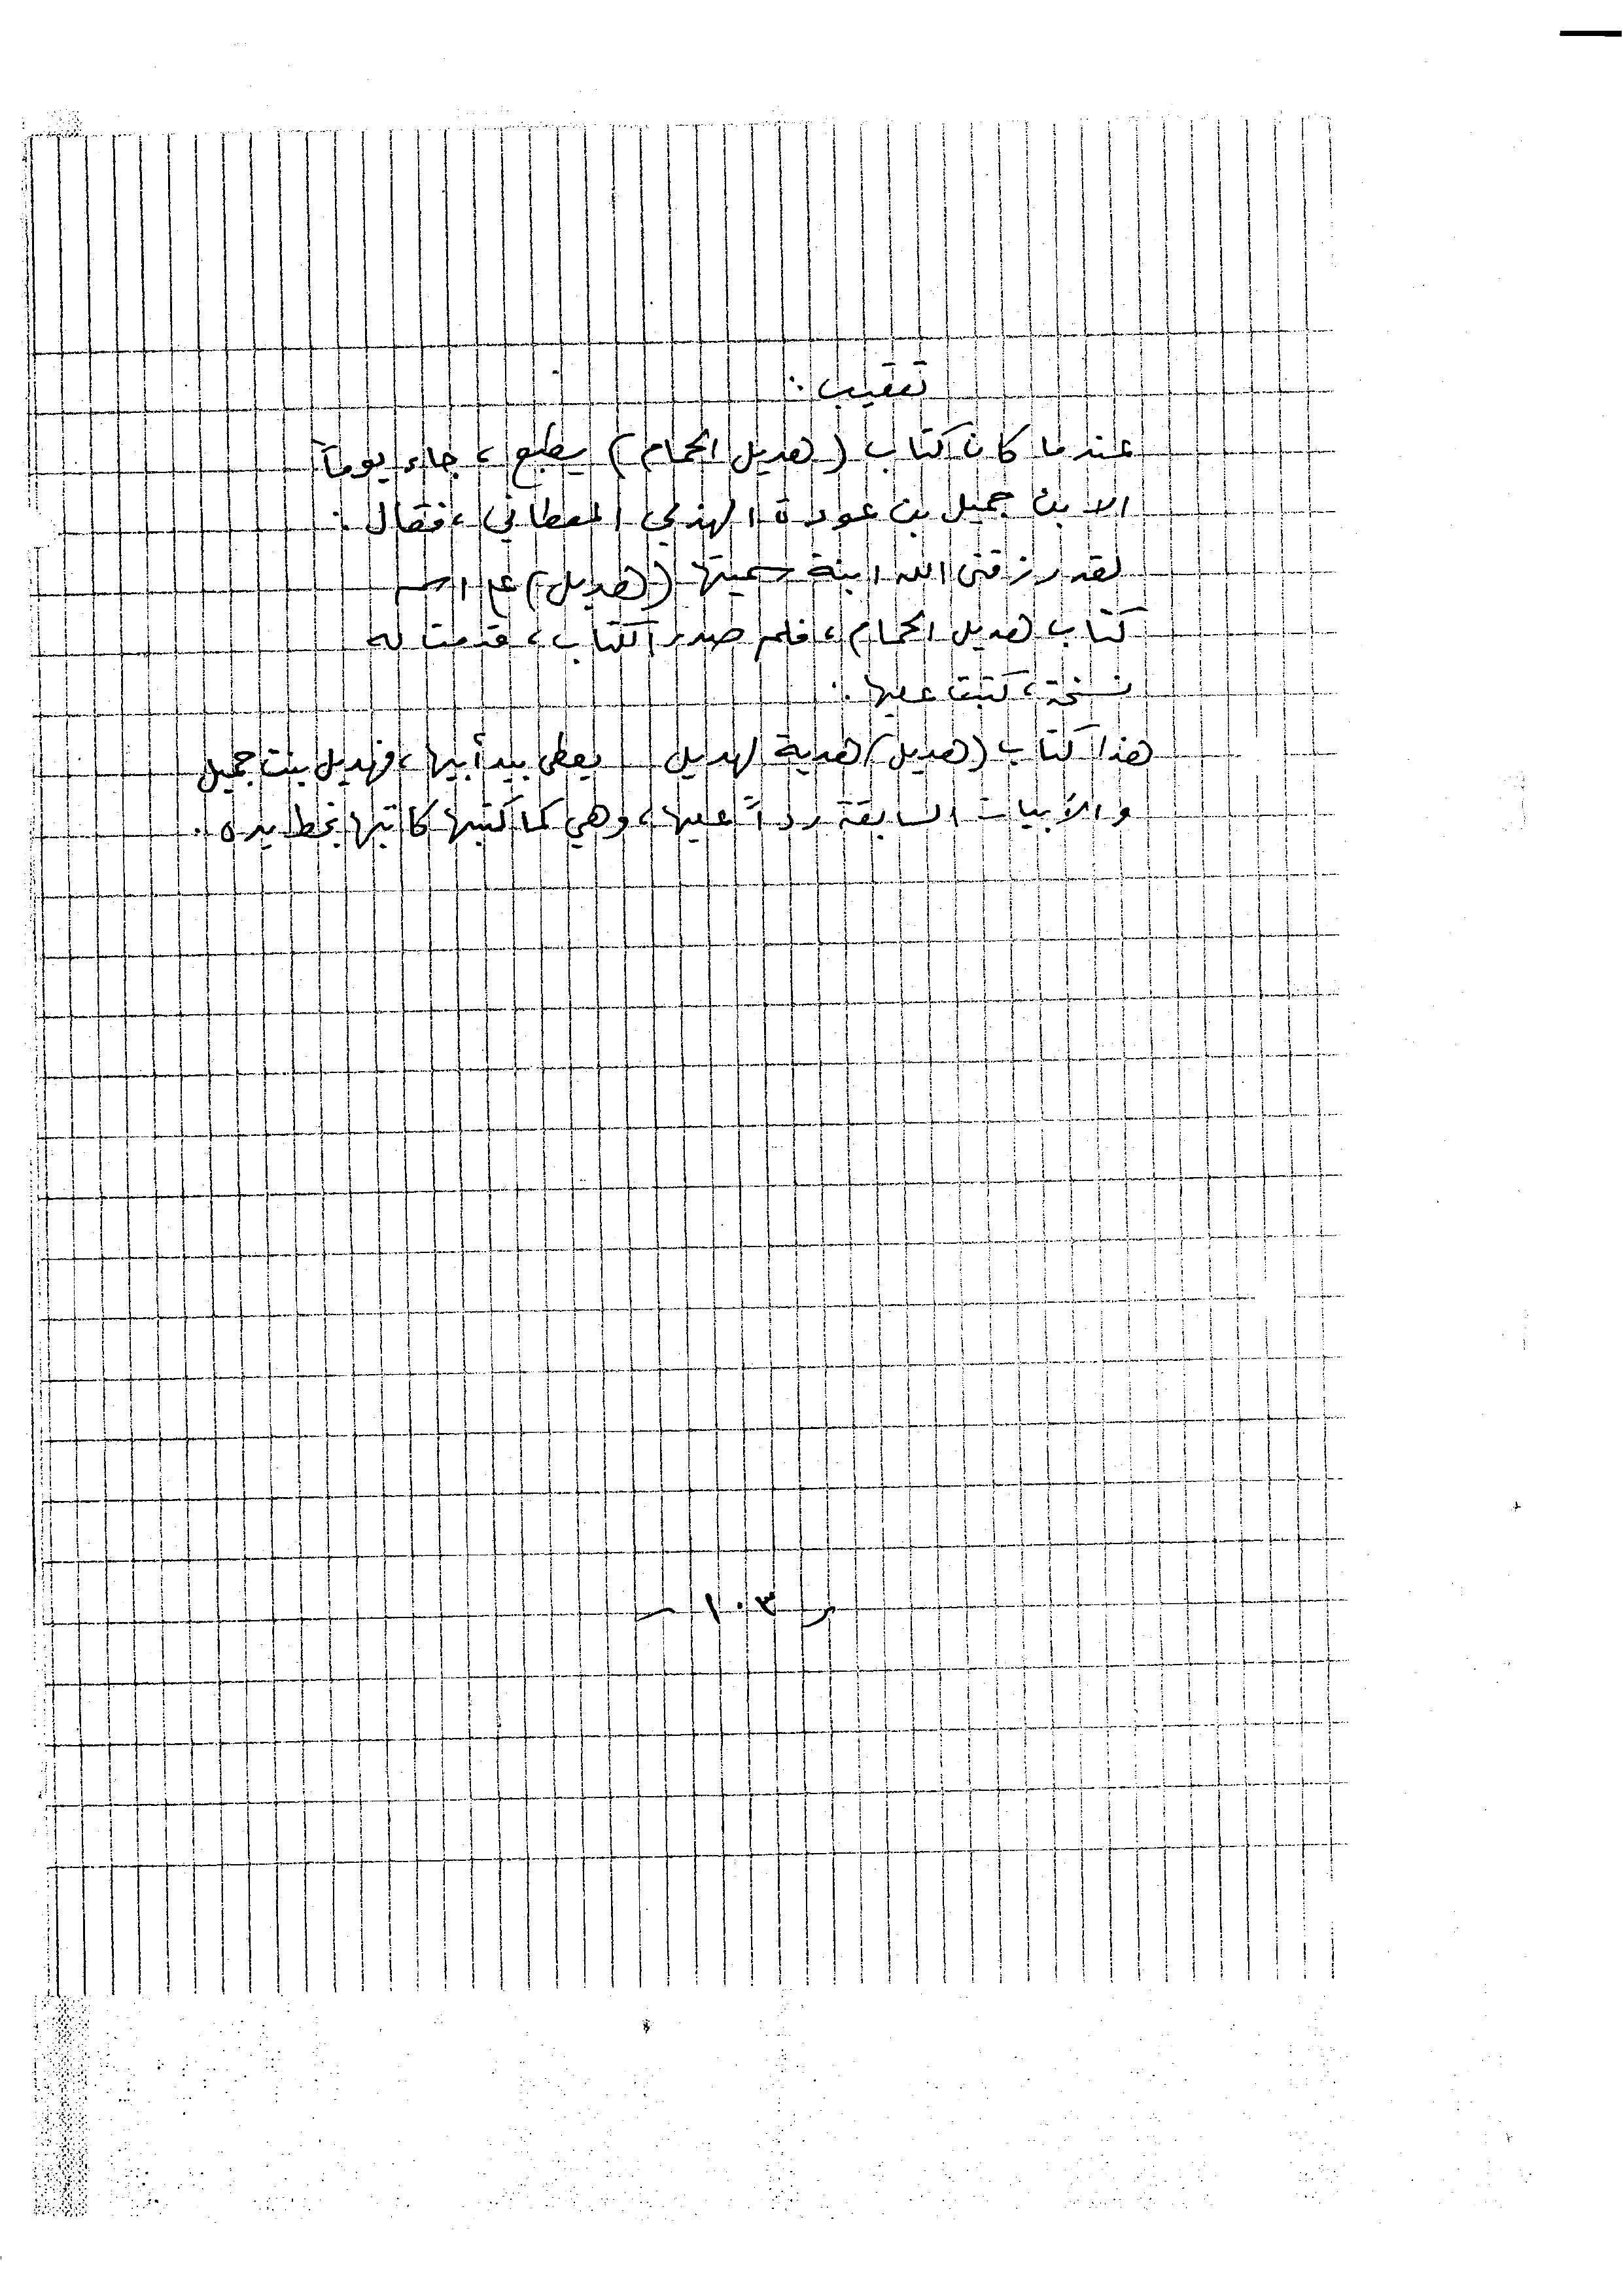 تعقيب :
عندما كان كتاب (هديل الحمام) يطبع، جاء يوماً
الابن جميل بن عودة الهذلي المعطاني، فقال :
لقد رزقني الله ابنة سميتها (هديل) على اسم
كتاب هديل الحمام، فلم صدر الكتاب، قدمت له
نسخة، كتبت عليها :
هذا كتاب (هديل) هدية لهديل يعطى بيد أبيها، فهديل بنت جميل
والأبيات السابقة رداً عليها، وهي كما كتبها كاتبها بخط يده .
- ١٠٣ -